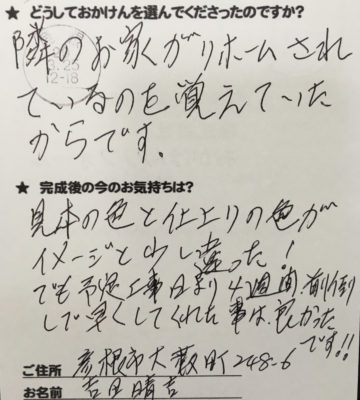 ★ どうしておかけんを選んでくださったのですか?
隣のお家がリホームされ
ているのを覚えていた
からです.
12-18
★ 完成後の今のお気持ちは?
見本の色と仕上りの色が
イメージと少し違った!
でも予定工事日より4週間前倒
しで早くしてくれた事は、良かった
です!!
ご住所 彦根市大薮町248-6
お名前 吉田晴吉